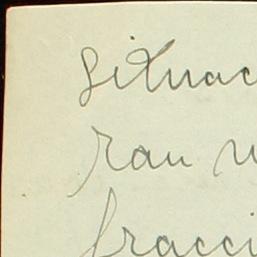 situac
ran
fracci